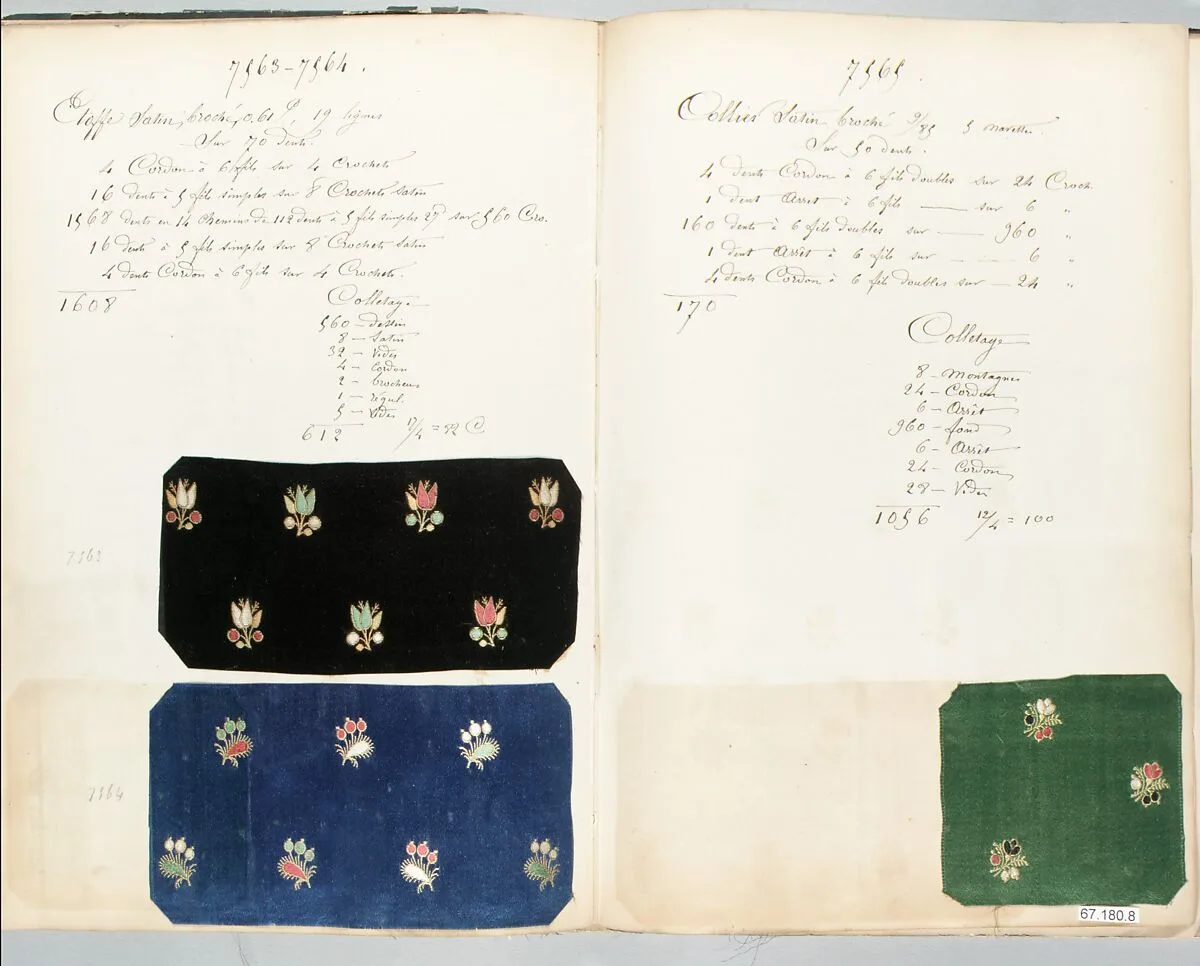 7563-7564.
Etoffe Satin broché, 0.61 19 lignes
Sur 70 Dents.
4 Cordon à 6 fils sur 4 Crochets
16 dents à 5 fils simples sur 8 Crochets Satin
1568 dents en 14 Chemins de 112 dents à 5 fils simples sur 560 Cro.
16 dents à 5 fils simples sur 8 Crochets Satin
4 dents Cordon à 6 fils sur 4 Crochets.
1608
Colletage
560 - dessin
8 - Satin
32 - Vides
4 - Cordon
2 - brocheurs
1 - régul.
5 - Vides
612 = 52 C
7563
7564
7565.
Collier Satin broché 9/85 5 navettes.
Sur 50 dents.
4 dents Cordon à 6 fils doubles sur 24 Croch.
1 dent Arrêt à 6 fils — sur 6 "
160 dents à 6 fils doubles sur — 960 "
1 dent Arrêt à 6 fils sur — 6 "
4 dents Cordon à 6 fils doubles sur — 24 "
170
Colletage
8 - Montagnes
24 - Cordon
6 - Arrêt
960 - fond
6 - Arrêt
24 - Cordon
28 - Vides
1056 12/4 = 100
67.180.8